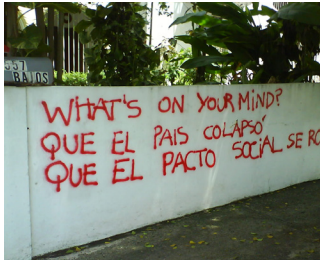 557
BAJOS
WHAT'S ON YOUR MIND?
QUE EL PAIS COLAPSÓ
QUE EL PACTO SOCIAL SE